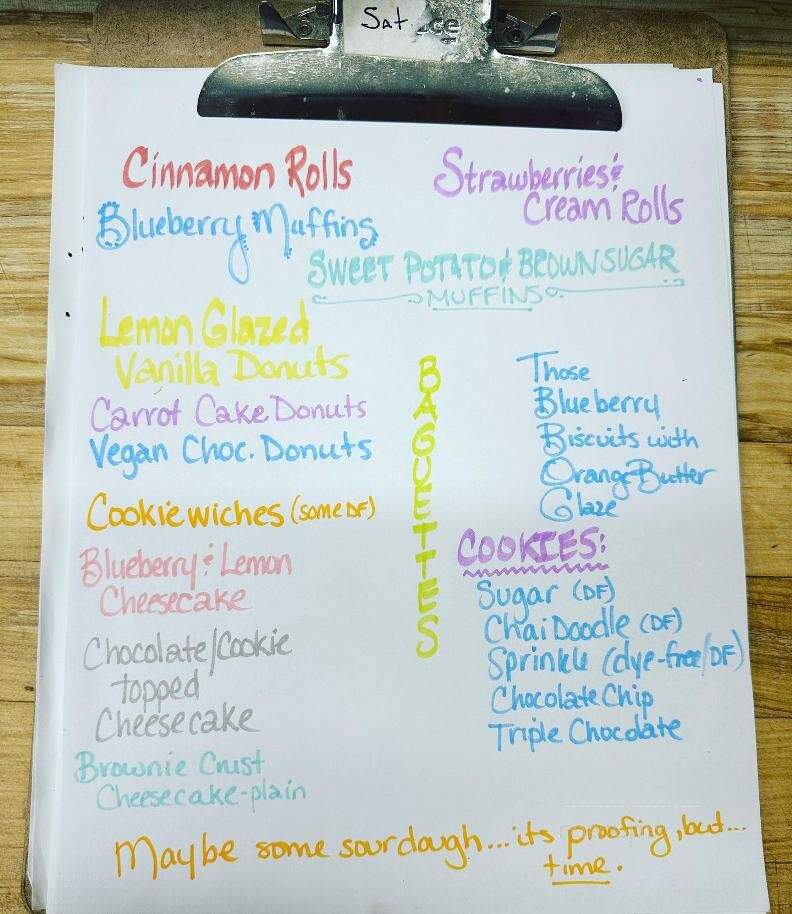 Sat.
Cinnamon Rolls
Strawberries &
Cream Rolls
Blueberry Muffins
SWEET POTATO & BROWN SUGAR
MUFFINS
Lemon Glazed
Vanilla Donuts
Carrot Cake Donuts
Vegan Choc. Donuts
Cookiewiches (some DF)
Blueberry & Lemon
Cheesecake
Chocolate/Cookie
topped
Cheesecake
Brownie Crust
Cheesecake-plain
BAGUETTES
Those
Blueberry
Biscuits with
Orange Butter
Glaze
COOKIES:
Sugar (DF)
Chai Doodle (DF)
Sprinkle (dye-free/DF)
Chocolate Chip
Triple Chocolate
Maybe some sourdough...its proofing, but...
time.